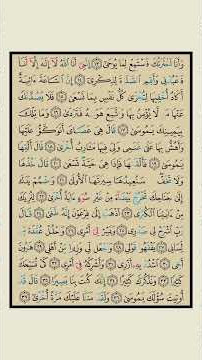 وَأَنَا ٱخْتَرْتُكَ فَٱسْتَمِعْ لِمَا يُوحَىٰٓ ١٣ إِنَّنِىٓ أَنَا ٱللَّهُ لَآ إِلَٰهَ إِلَّآ أَنَا۠
فَٱعْبُدْنِى وَأَقِمِ ٱلصَّلَوٰةَ لِذِكْرِىٓ ١٤ إِنَّ ٱلسَّاعَةَ ءَاتِيَةٌ
أَكَادُ أُخْفِيهَا لِتُجْزَىٰ كُلُّ نَفْسٍۭ بِمَا تَسْعَىٰ ١٥ فَلَا يَصُدَّنَّكَ
عَنْهَا مَن لَّا يُؤْمِنُ بِهَا وَٱتَّبَعَ هَوَىٰهُ فَتَرْدَىٰ ١٦ وَمَا تِلْكَ
بِيَمِينِكَ يَٰمُوسَىٰ ١٧ قَالَ هِىَ عَصَاىَ أَتَوَكَّؤُا۟ عَلَيْهَا
وَأَهُشُّ بِهَا عَلَىٰ غَنَمِى وَلِىَ فِيهَا مَـَٔارِبُ أُخْرَىٰ ١٨ قَالَ أَلْقِهَا
يَٰمُوسَىٰ ١٩ فَأَلْقَىٰهَا فَإِذَا هِىَ حَيَّةٌ تَسْعَىٰ ٢٠ قَالَ خُذْهَا
وَلَا تَخَفْ سَنُعِيدُهَا سِيرَتَهَا ٱلْأُولَىٰ ٢١ وَٱضْمُمْ يَدَكَ
إِلَىٰ جَنَاحِكَ تَخْرُجْ بَيْضَآءَ مِنْ غَيْرِ سُوٓءٍ ءَايَةً أُخْرَىٰ ٢٢
لِنُرِيَكَ مِنْ ءَايَٰتِنَا ٱلْكُبْرَى ٢٣ ٱذْهَبْ إِلَىٰ فِرْعَوْنَ إِنَّهُۥ طَغَىٰ ٢٤ قَالَ
رَبِّ ٱشْرَحْ لِى صَدْرِى ٢٥ وَيَسِّرْ لِىٓ أَمْرِى ٢٦ وَٱحْلُلْ عُقْدَةً مِّن
لِّسَانِى ٢٧ يَفْقَهُوا۟ قَوْلِى ٢٨ وَٱجْعَل لِّى وَزِيرًا مِّنْ أَهْلِى ٢٩ هَٰرُونَ
أَخِى ٣٠ ٱشْدُدْ بِهِۦٓ أَزْرِى ٣١ وَأَشْرِكْهُ فِىٓ أَمْرِى ٣٢ كَىْ نُسَبِّحَكَ
كَثِيرًا ٣٣ وَنَذْكُرَكَ كَثِيرًا ٣٤ إِنَّكَ كُنتَ بِنَا بَصِيرًا ٣٥ قَالَ قَدْ
أُوتِيتَ سُؤْلَكَ يَٰمُوسَىٰ ٣٦ وَلَقَدْ مَنَنَّا عَلَيْكَ مَرَّةً أُخْرَىٰٓ ٣٧